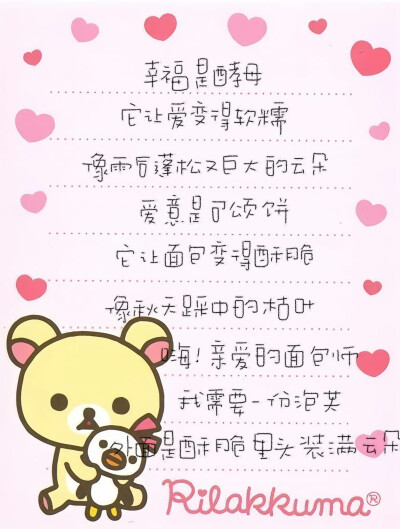 幸福是酵母
它让爱变得软糯
像雨后蓬松又巨大的云朵
爱意是可颂饼
它让面包变得酥脆
像秋天踩中的枯叶
嗨!亲爱的面包师
我需要一份泡芙
外面是酥脆里头装满云朵
Rilakkuma®